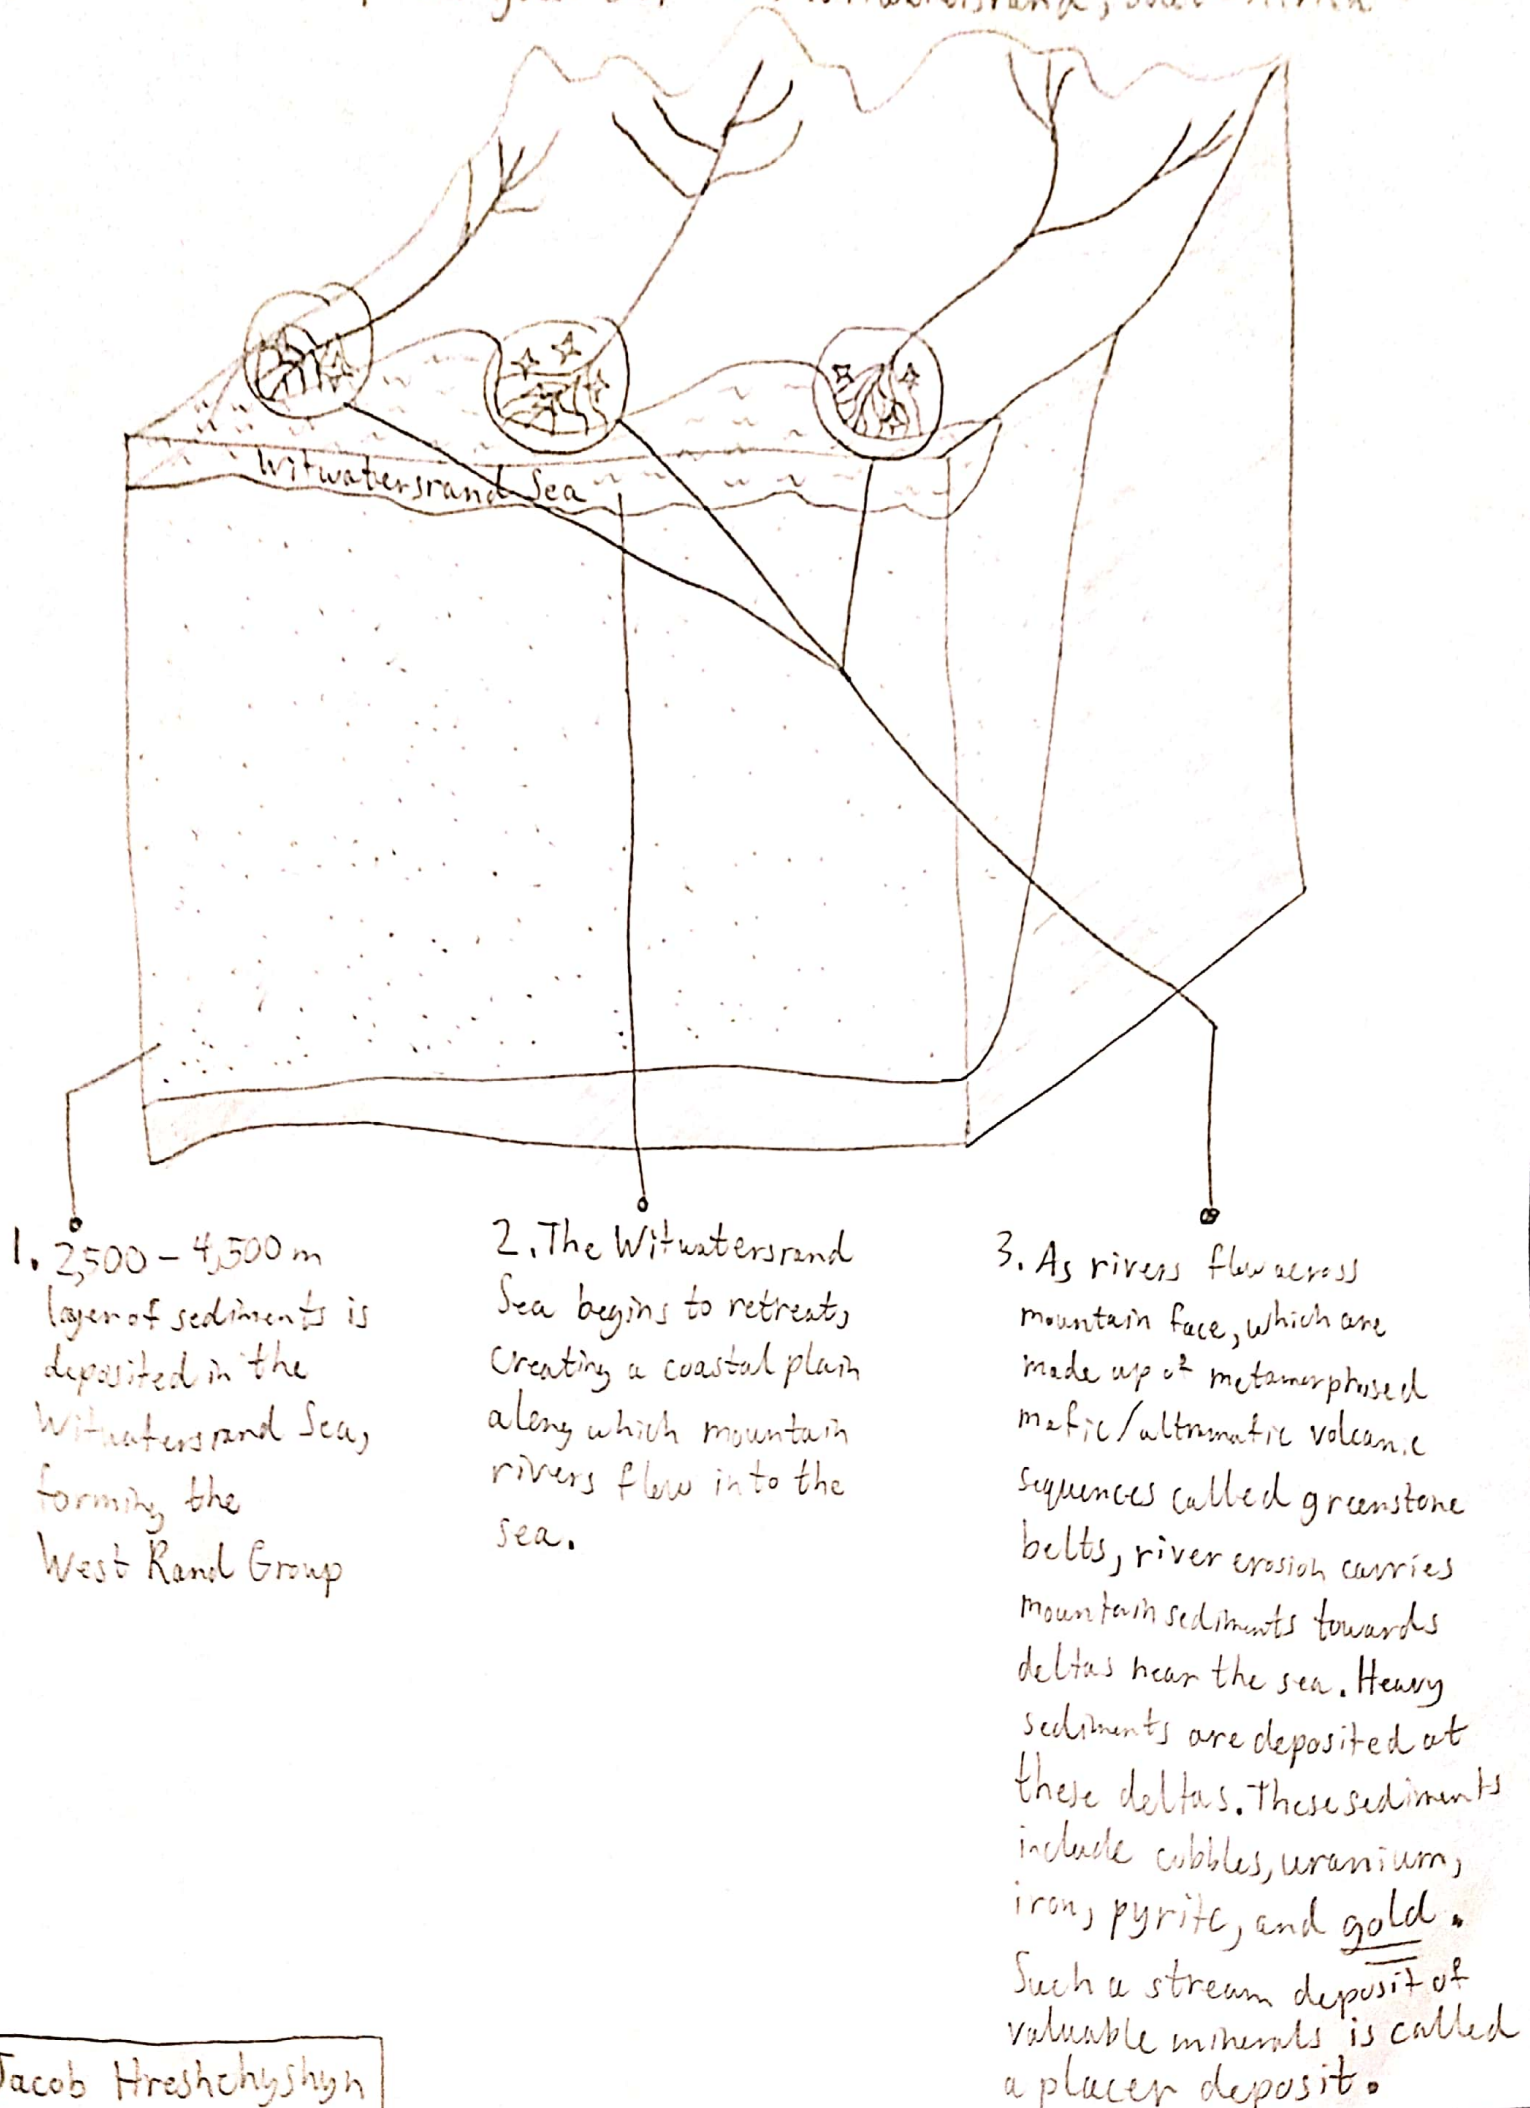 Witwatersrand, South Africa
Witwatersrand Sea
1. 2,500 – 4,500 m
layer of sediments is
deposited in the
Witwatersrand Sea,
forming the
West Rand Group
2. The Witwatersrand
Sea begins to retreat,
creating a coastal plain
along which mountain
rivers flow into the
sea.
3. As rivers flow across
mountain face, which are
made up of metamorphosed
mafic/ultramafic volcanic
sequences called greenstone
belts, river erosion carries
mountain sediments towards
deltas near the sea. Heavy
sediments are deposited at
these deltas. These sediments
include cobbles, uranium,
iron, pyrite, and gold.
Such a stream deposit of
valuable minerals is called
a placer deposit.
Jacob Hreshchyshyn